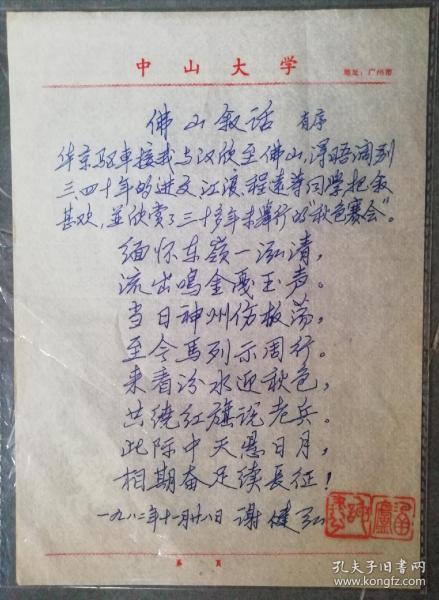 中山大学
地址：广州市
佛山叙话 有序
华京驱車接我与汉欣至佛山，得晤阔别
三四十年的进文、江浪、程远等同学把叙
甚欢，並欣赏了三十多年未舉行的“秋色赛会”。
缅怀东嶺一泓清，
流出鸣金戛玉声。
当日神州伤板荡，
至今馬列示周行。
来看汾水迎秋色，
共绕红旗说老兵。
此际中天悬日月，
相期奋足续長征！
一九八二年十一月廿八日 谢健弘
第 頁
孔夫子旧书网
www.kongfz.com